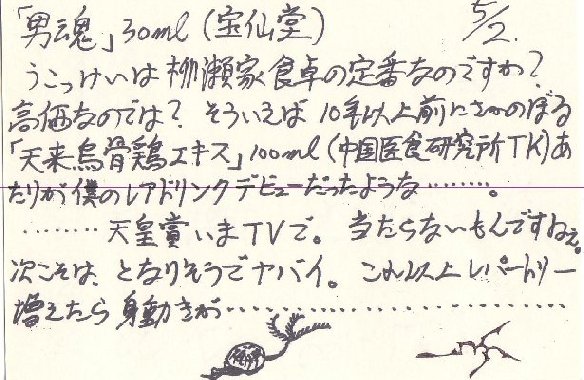 「男魂」30ml(宝仙堂) 5/2.
うこっけいは柳瀬家食卓の定番なのですか?
高価なのでは? そういえば10年以上前にさかのぼる
「天来烏骨鶏エキス」100ml(中国医食研究所TK)あ
たりが僕のレアドリンクデビューだったような………。
………天皇賞いまTVで。当たらないもんですねぇ。
次こそは、となりそうでヤバイ。これ以上レパートリー
増えたら身動きが……………………